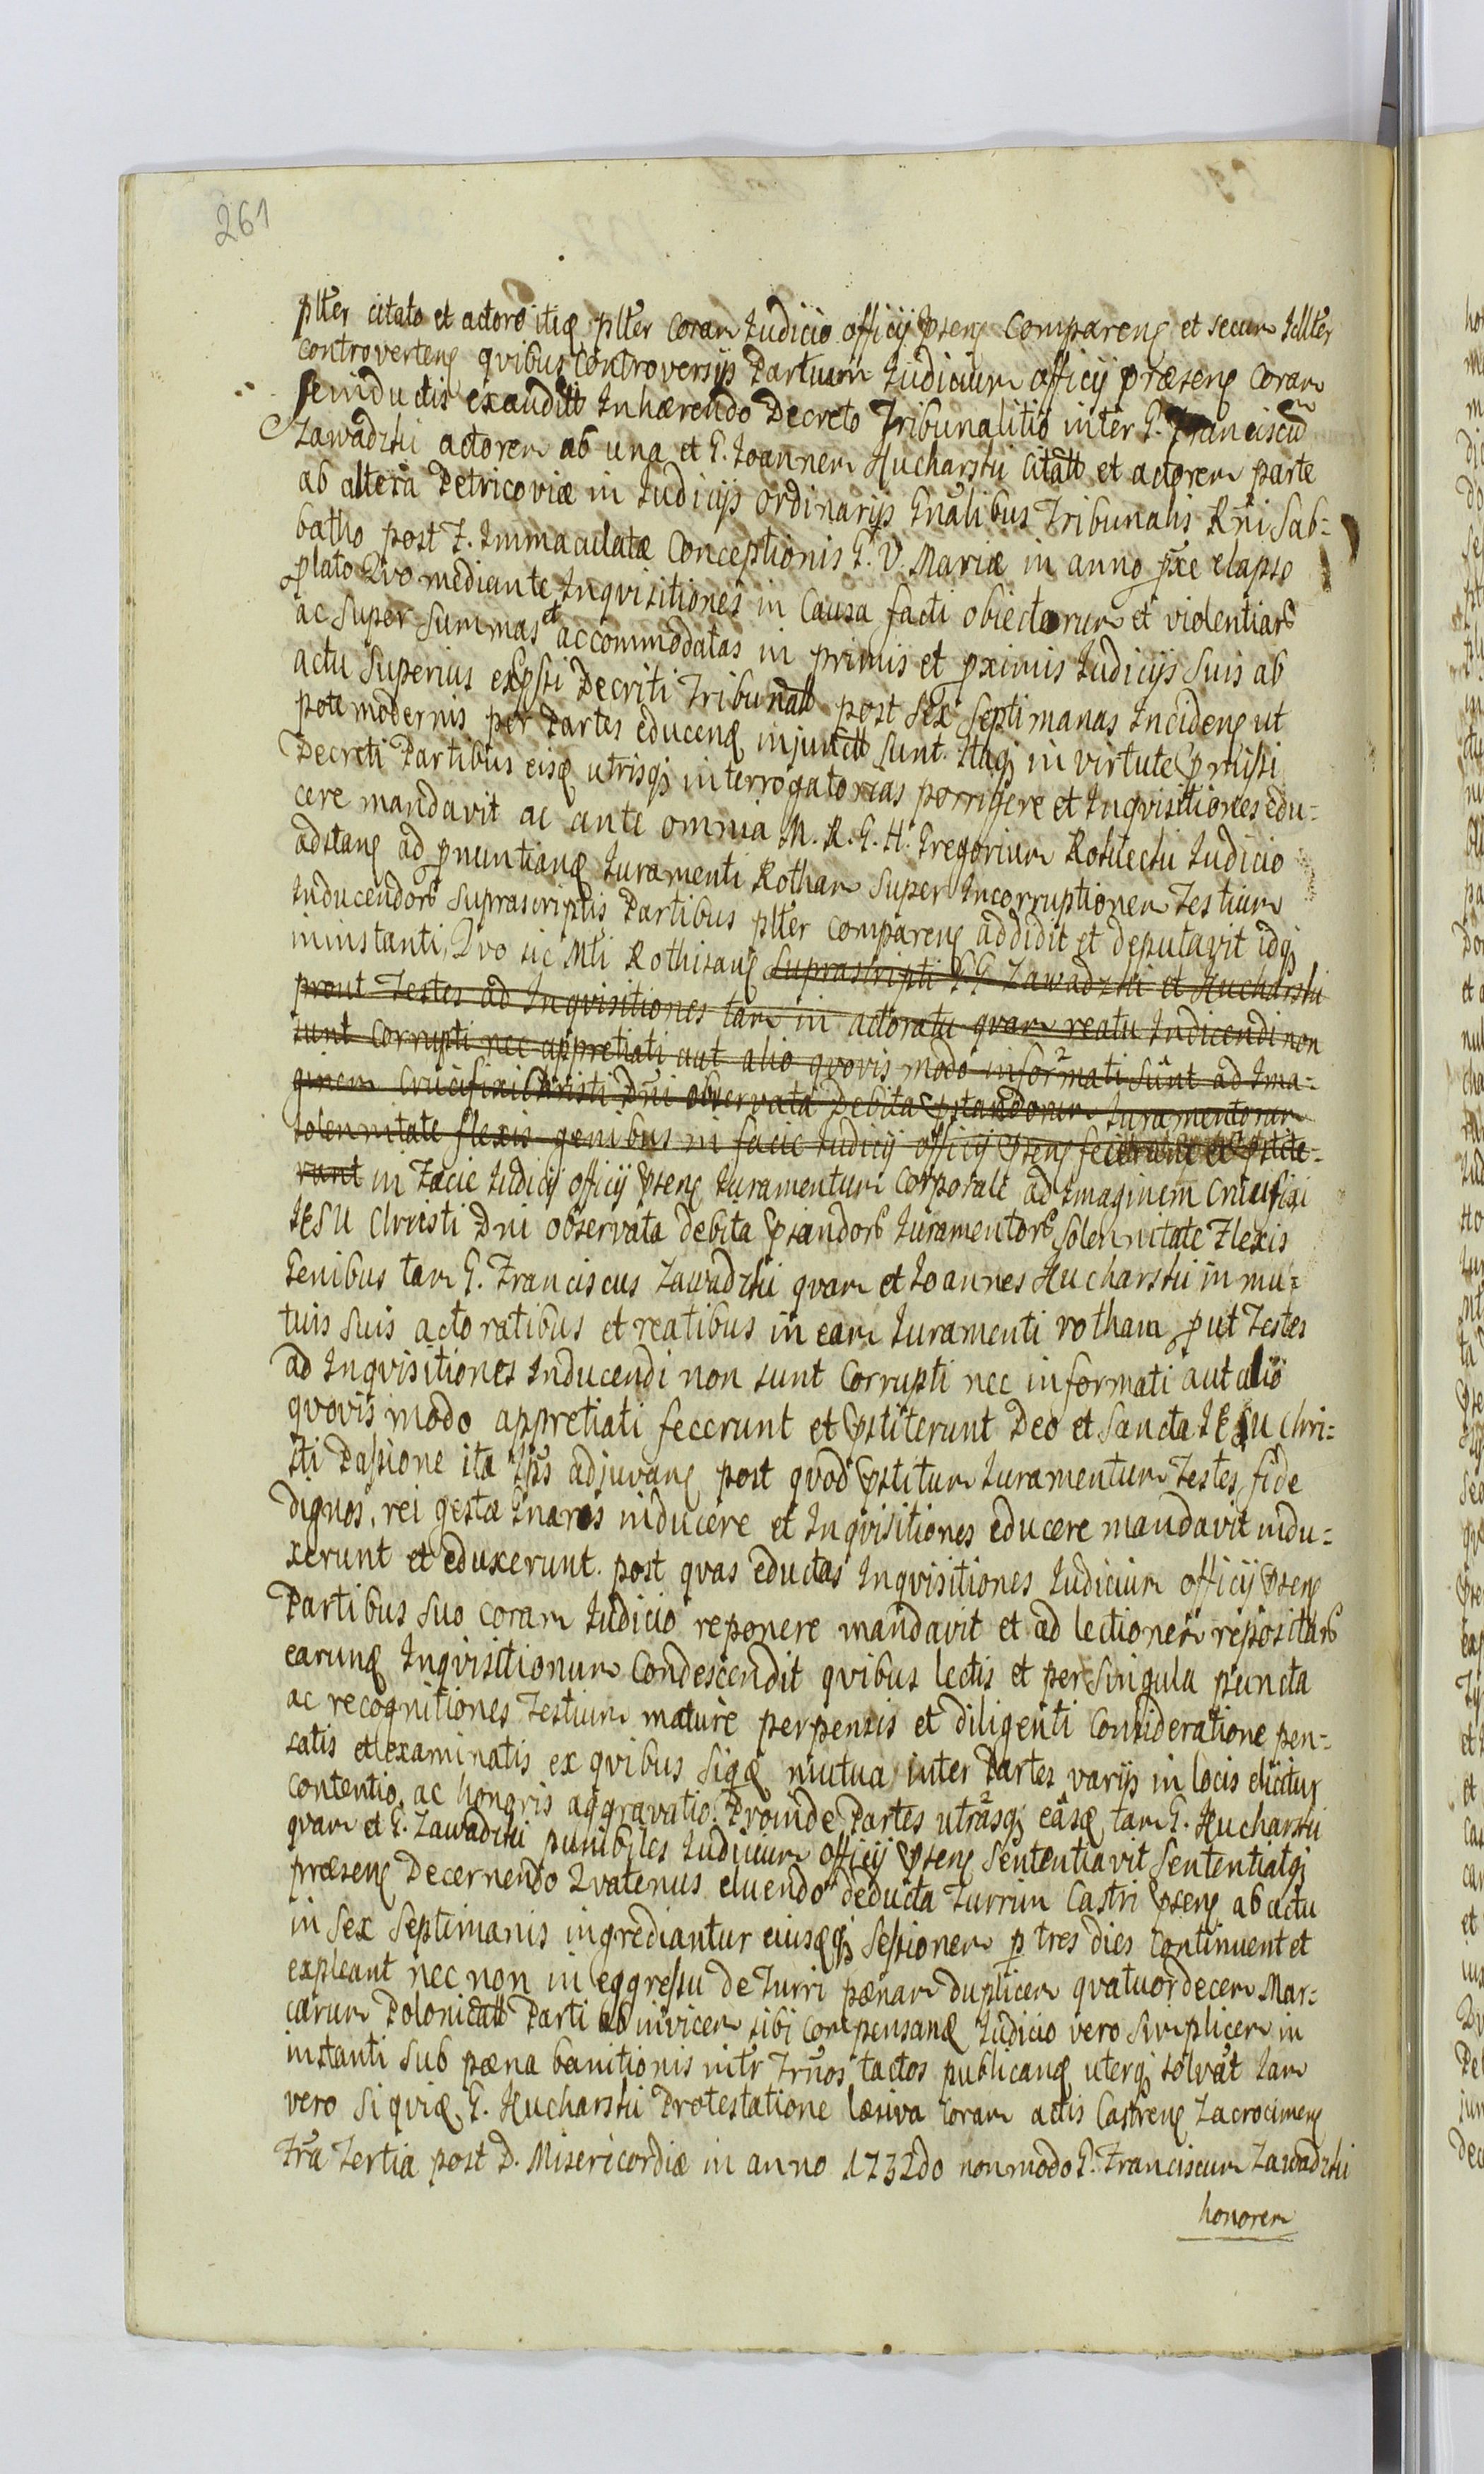 261
plter citato et actore itiq plter coram Iudicio officij pseñ Compareñ et secum Iclliter
controverteñ qvibus Controversijs Partium Iudicium officij præseñ coram
se inductis exauditt Inhærendo Decreto Tribunalitio inter G. Franciscū
Zawadzki actorem ab una et G. Ioannem Kucharski Citatt et actorem parte
ab altera Petricoviæ in Iudicijs ordinarijs Gnālibus Tribunalis Rni Sab=
batho post F. Immaculatæ Conceptionis B. V. Mariæ in anno pxe elapso
plato Qvo mediante Inqvisitiones in Causa facti obiectorum et violentiarb
ac super summas et accommodatas in primis et pximis Iudicijs suis ab
actu superius expssti Decriti Tribunatt post sex septimanas Incideñ ut
pote modernis per Partes educenq injunctt sunt. Itaq in virtute pmissi
Decreti Partibus eisq utrisq interrogatorias porrigere et Inqvisitiones edu=
cere mandavit ac ante omnia M. R. G. H. Gregorium Rościecki Iudicio
adstañ ad pnuntianq Iuramenti Rotham super Incorruptionem Testium
Inducendorb suprascriptis Partibus plter compareñ addidit et deputavit idq
in instanti, Qvo sic Mli Rothisañ suprascripti G. G. Zawadzki et Kucharski
prout Testes ad Inqvisitiones tam in actoratu qvam reatu Indicendi non
sunt Corrupti nec appretiati aut alio qvovis modo informati sunt ad Ima=
ginem Crucifixi Christi Dni observata Debita pstandorum Iuramentorum
solennitate flexis genibus in facie Iudicij officij pseñ fecerunt et pstite=
runt in Facie Iudicij officij pseñ Iuramentum Corporale ad Imaginem Crucifixi
IESU Christi Dni observata debita pstandorb Iuramentorb solennitate Flexis
Genibus tam G. Franciscus Zawadzki qvam et Ioannes Kucharski in mu=
tuis suis actoratibus et reatibus in eam Iuramenti rotham put Testes
ad Inqvisitiones Inducendi non sunt Corrupti nec informati aut alio
qvovis modo appretiati fecerunt et pstiterunt Deo et sancta IESU Chri=
sti Passione ita Ipsis adjuvañ post qvod pstitum Iuramentum Testes fide
dignos, rei gestæ Gnaros inducere et Inqvisitiones educere mandavit indu=
xerunt et eduxerunt. post qvas eductas Inqvisitiones Iudicium officij pseñ
Partibus suo coram Iudicio reponere mandavit et ad lectionem repositarb
earunq Inqvisitionum Condescendit qvibus lectis et per singula puncta
ac recognitiones Testium mature perpensis et diligenti Consideratione pen=
satis et examinatis ex qvibus siqq mutua inter Partes varijs in locis elicitur
contentio, ac honoris aggravatio. Proinde Partes utrasq easq tam G. Kucharski
qvam et G. Zawadzki punibiles Iudicium officij pseñ sententiavit sententiatq
præseñ Decernendo Qvatenus eluendo deducta Turrim Castri pseñ ab actu
in sex septimanis ingrediantur eiusqq sessionem p tres dies Continuent et
expleant nec non in eggressu de Turri pænam duplicem qvatuordecem Mar=
carum Polonicatt Parti ab invicem sibi compensanq Iudicio vero simplicem in
instanti sub pæna banitionis intr Trnos tactos publicanq uterq solvat Iam
vero si qviq G. Kucharski Protestatione læsiva coram actis Castreñ Zacrocimeñ
Fra Tertia post D. Misericordiæ in anno 1732do non modo G. Franciscum Zawadzki
honorem